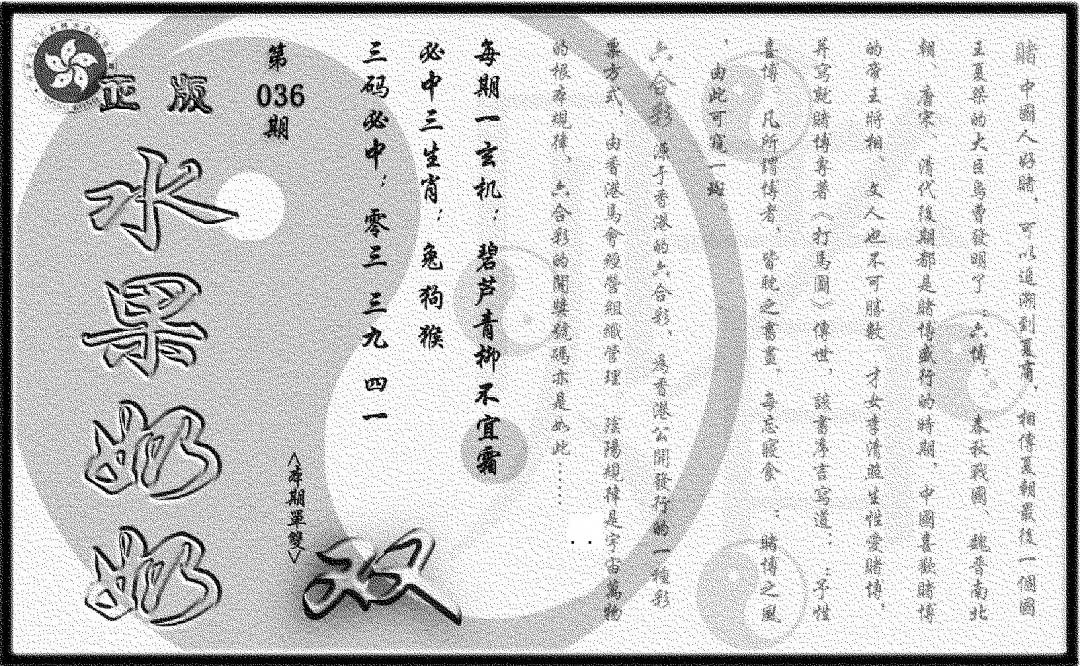 賭 中國人好賭，可以追溯到夏商，相傳夏朝最後一個國
王夏桀的大臣烏曹發明了：六博，春秋戰國、魏晉南北
朝、唐宋、清代後期都是賭博盛行的時期，中國喜歡賭博
的帝王將相 文人也不可勝數 才女李清照生性愛賭博，
并寫就賭博專著《打馬圖》傳世，該書序言寫道：：予性
喜博 凡所謂博者，皆耽之晝晝，每忘寢食 ：賭博之風
，由此可窺一斑。
六合彩 源于香港的六合彩，為香港公開發行的一種彩
票方式，由香港馬會經營組織管理 陰陽規律是宇宙萬物
的根本規律，六合彩的開獎號碼亦是如此……
每期一玄机：碧芦青柳不宜霜
必中三生肖：兔狗猴
三码必中：零三 三九 四一
第
036
期
正版
水果奶奶
<本期單雙>
双